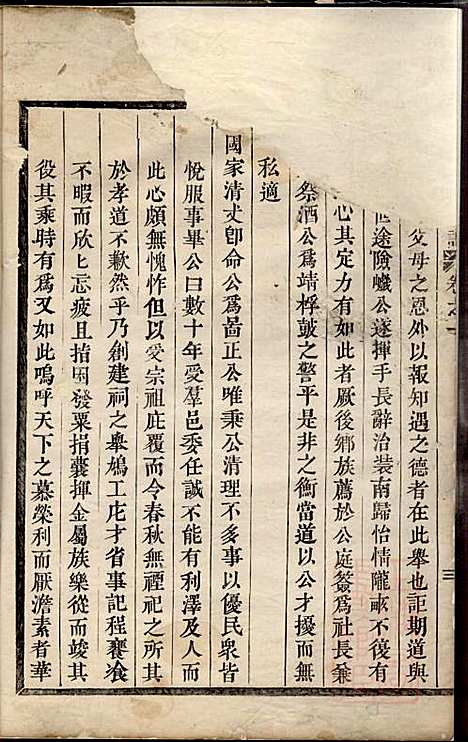 譜 卷之一 三
父母之恩外以報知遇之德者在此舉也詎期道與
途險巇公遂揮手長辭治裝南歸怡情隴畝不復有
心其定力有如此者厥後鄉族薦於公庭簽爲社長兼
祭酒公爲靖桴皷之警平是非之衡當道以公才擾而無
私適
國家清丈卽命公爲啚正公唯秉公清理不多事以優民衆皆
悅服事畢公曰數十年受羣邑委任誠不能有利澤及人而
此心頗無愧怍但以爱宗祖庇覆而令春秋無禋祀之所其
於孝道不歉然乎乃創建祠之舉鳩工庀才省事記程饔飱
不暇而欣匕忘疲且捐囷發粟捐囊揮金屬族樂從而竣其
役其乘時有爲又如此嗚呼天下之慕榮利而厭澹素者華